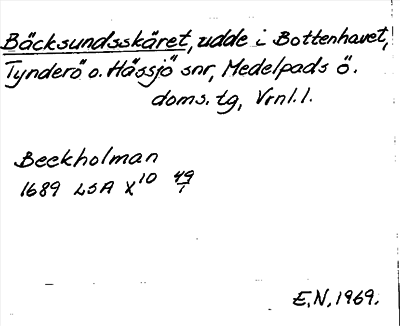 Bäcksundsskäret, udde i Bottenhavet,
Tynderö o. Hässjö snr, Medelpads ö.
doms. tg, Vrnl. l.
Beekholman
1689 LSA X¹⁰ 49/1
E.N. 1969.